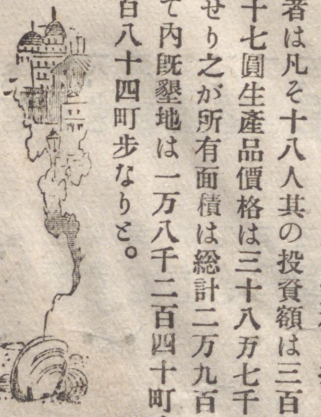 者は凡そ十八人其の投資額は三百
十七圓生產品價格は三十八万七千
せり之が所有面積は総計二万九百
て內旣墾地は一万八千二百四十町
百八十四町步なりと。